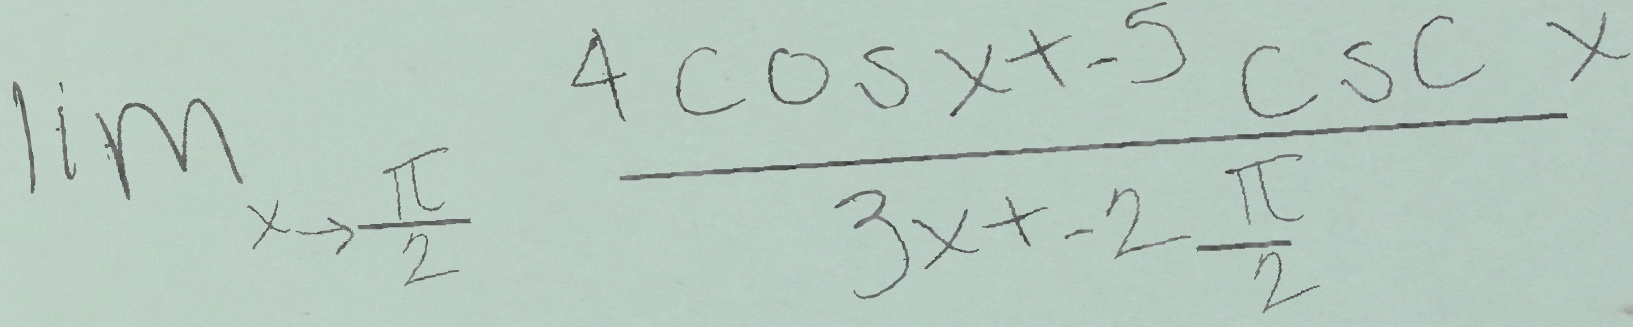 \lim_{x \to \frac{\pi}{2}} \frac{4 \cos x + -5 \csc x}{3x + -2 \frac{\pi}{2}}